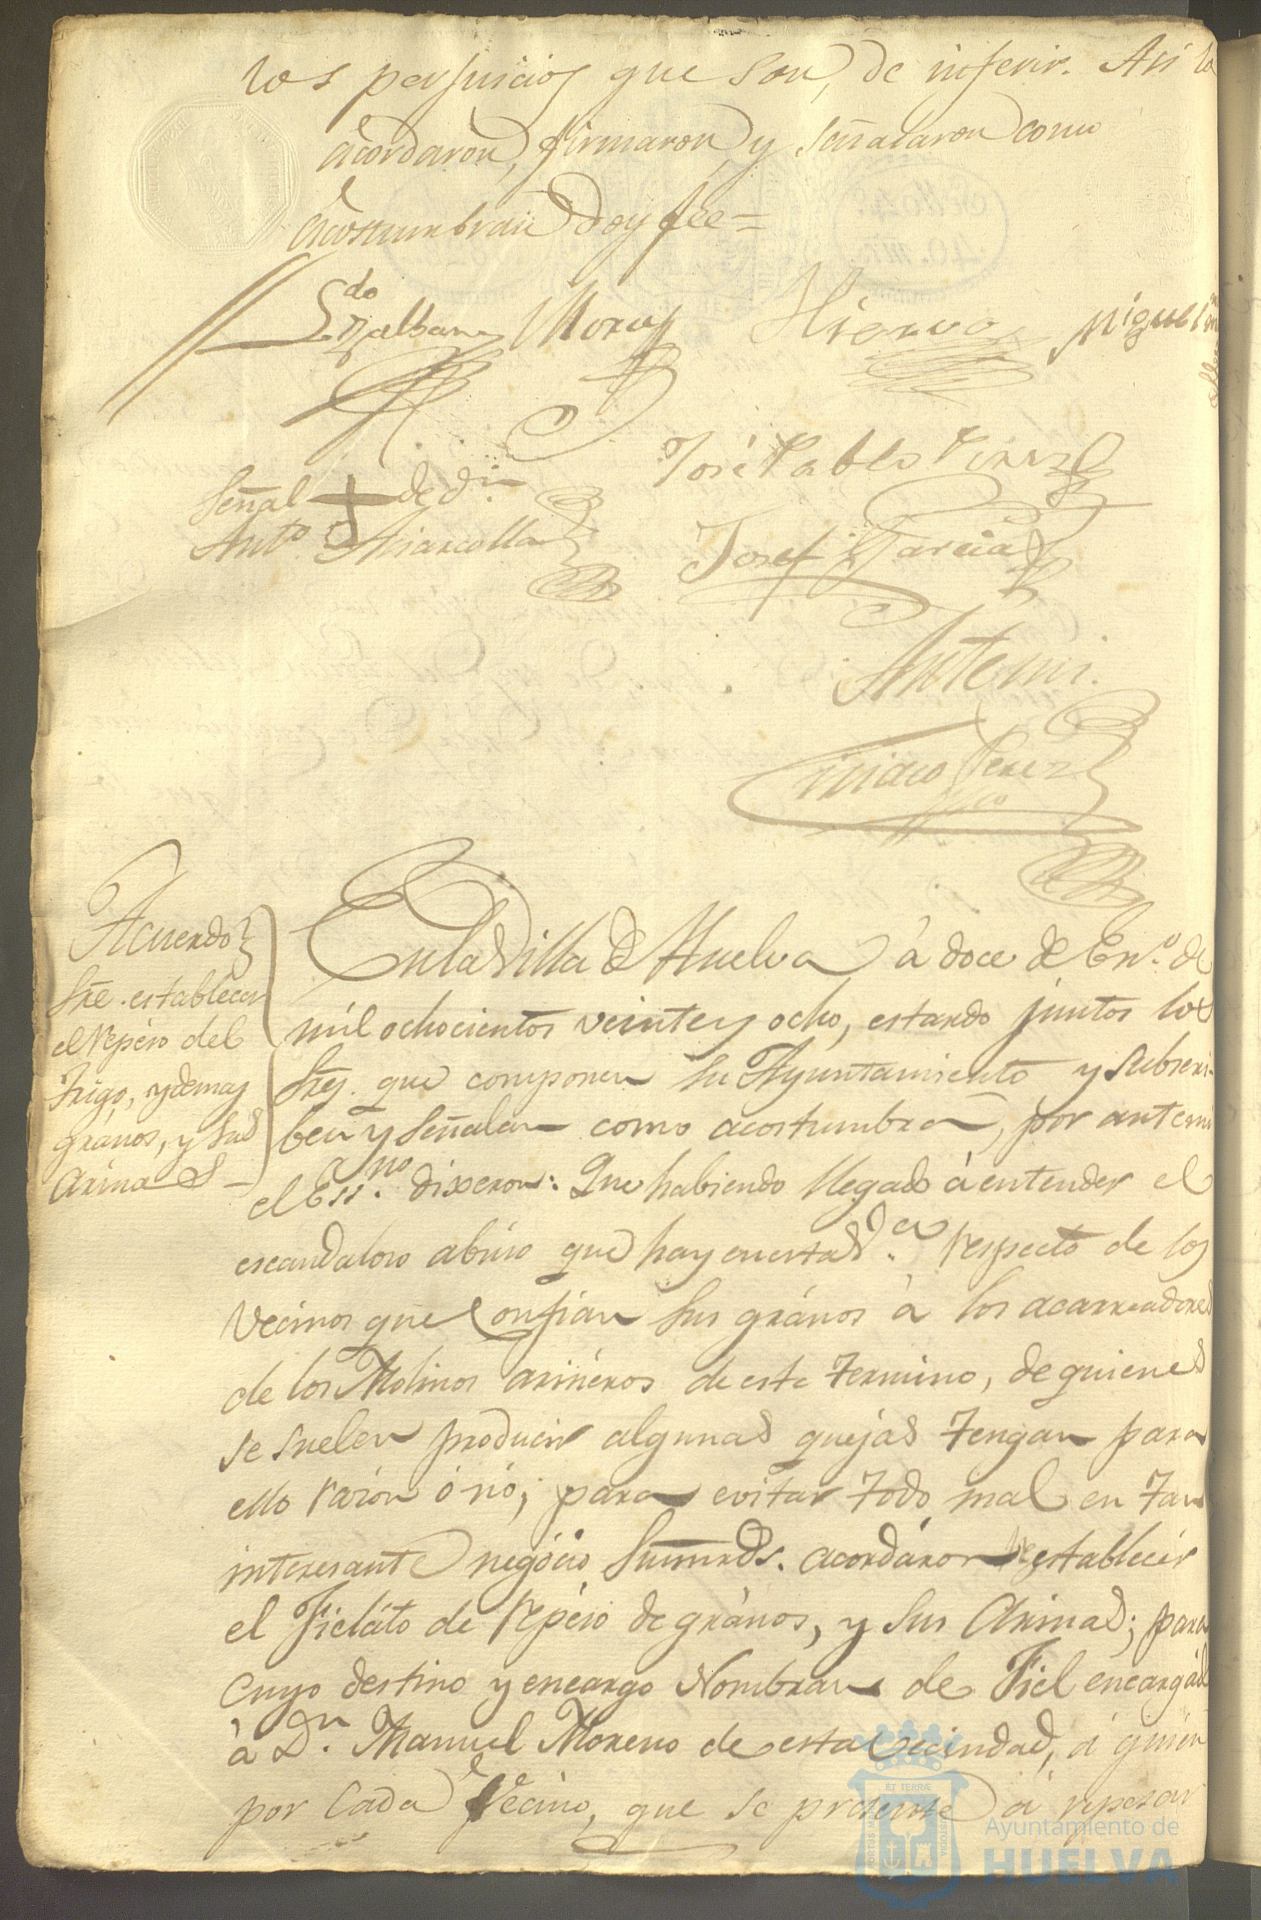 los perjuicios que son de inferir. Asi lo
acordaron, firmaron y señalaron como
acostumbran doy fee=
Ldo
Hierro Miguel
José Pablo Perez
Señal + de Dn
Anto Marcolla
Josef Garcia
Antemi.
Ciriaco Perez
Acuerdo
Sre. establecer
el repeso del
Trigo, y demas
grános, y sus
Arinas
En la Villa de Huelva à doce de En.o de
mil ochocientos veinte y ocho, estando juntos los
Sres. que componen su Ayuntamiento y subscri-
ben y señalan como acostumbran, por antemi
el Essno. dixeron: Que habiendo llegado à entender el
escandaloso abúso que hay en esta V.a respecto de los
Vecinos que confian sus grános à los acarreadores
de los Molinos arinéros de este termino, de quienes
se suelen producir algunas quejas tengan para
ello razón ó nó; para evitar todo mal en tan
interesante negócio Sus mrds. acordáron establecér
el Fieláto de repéso de grános, y sus Arinas; para
cuyo destino y encargo Nombran de Fiel encargad
à Dn. Manuel Moreno de esta vecindad, à quien
por cada Vecino, que se presente à repesar
ET TERRÆ
Ayuntamiento de
HUELVA